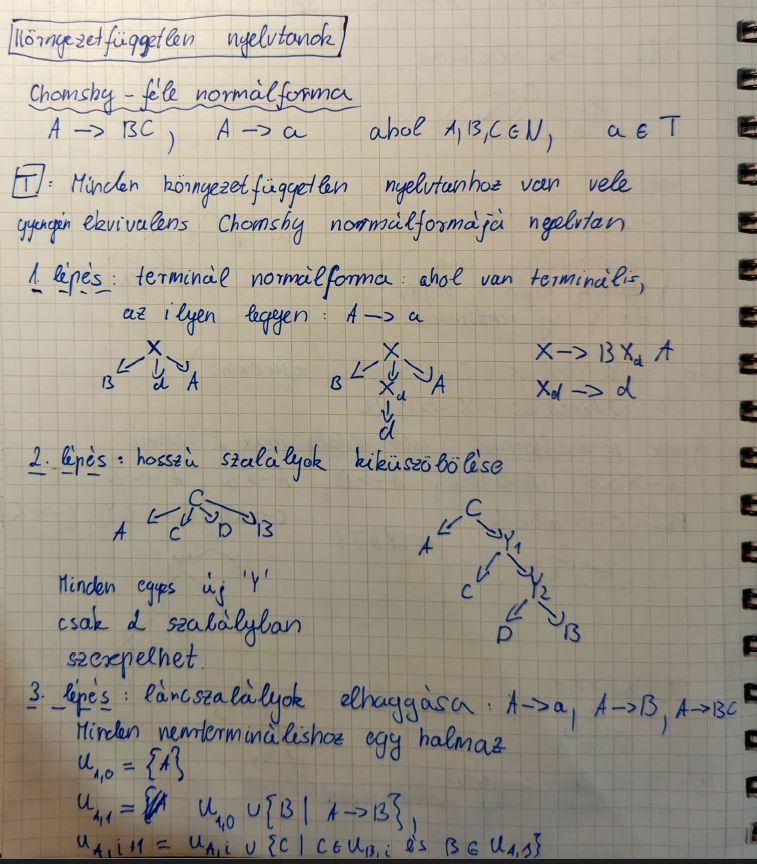 Környezetfüggetlen nyelvtanok
Chomsky-féle normálforma
A → BC, A → a ahol A,B,C ∈ N, a ∈ T
T: Minden környezetfüggetlen nyelvtanhoz van vele
gyengén ekvivalens Chomsky normálformájú nyelvtan
1. lépés: terminál normálforma: ahol van terminális,
az ilyen legyen: A → a
X X X → B X_d A
B d A B X_d A X_d → d
d
2. lépés: hosszú szabályok kiküszöbölése
C C
A C D B A Y1
C Y2
Minden egyes új 'Y'
csak 2 szabályban D B
szerepelhet.
3. lépés: láncszabályok elhaggása: A → a, A → B, A → BC
Minden nemterminálishoz egy halmaz
U_1,0 = {A}
U_1,1 = U_1,0 ∪ {B | A → B},
U_A,i+1 = U_A,i ∪ {C | C ∈ U_B,i és B ∈ U_A,1}